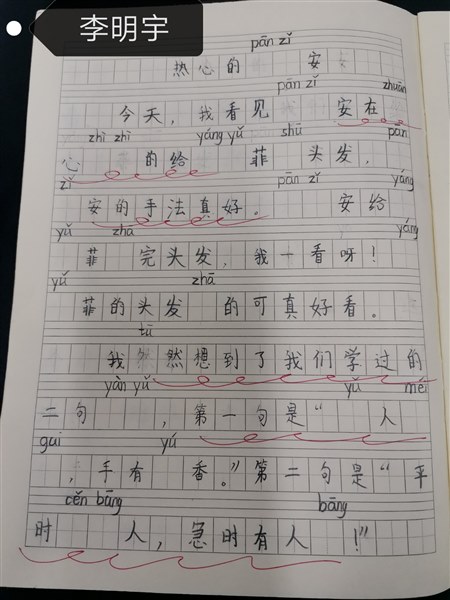 李明宇
pān zǐ
热心的 安
pān zǐ zhuān
今天，我看见 安在
zhī zhī yáng yǔ shū pān
心 的给 菲 头发，
zǐ pān zǐ yáng
安的手法真好。 安给
yǔ zhā yáng
菲 完头发，我一看呀！
yǔ zhā
菲的头发 的可真好看。
tū
我 然想到了我们学过的
yàn yǔ yǔ méi
二句 ，第一句是“ 人
gui yú
，手有 番。”第二句是“平
cěn bāng bāng
时 人，急时有人 ！”